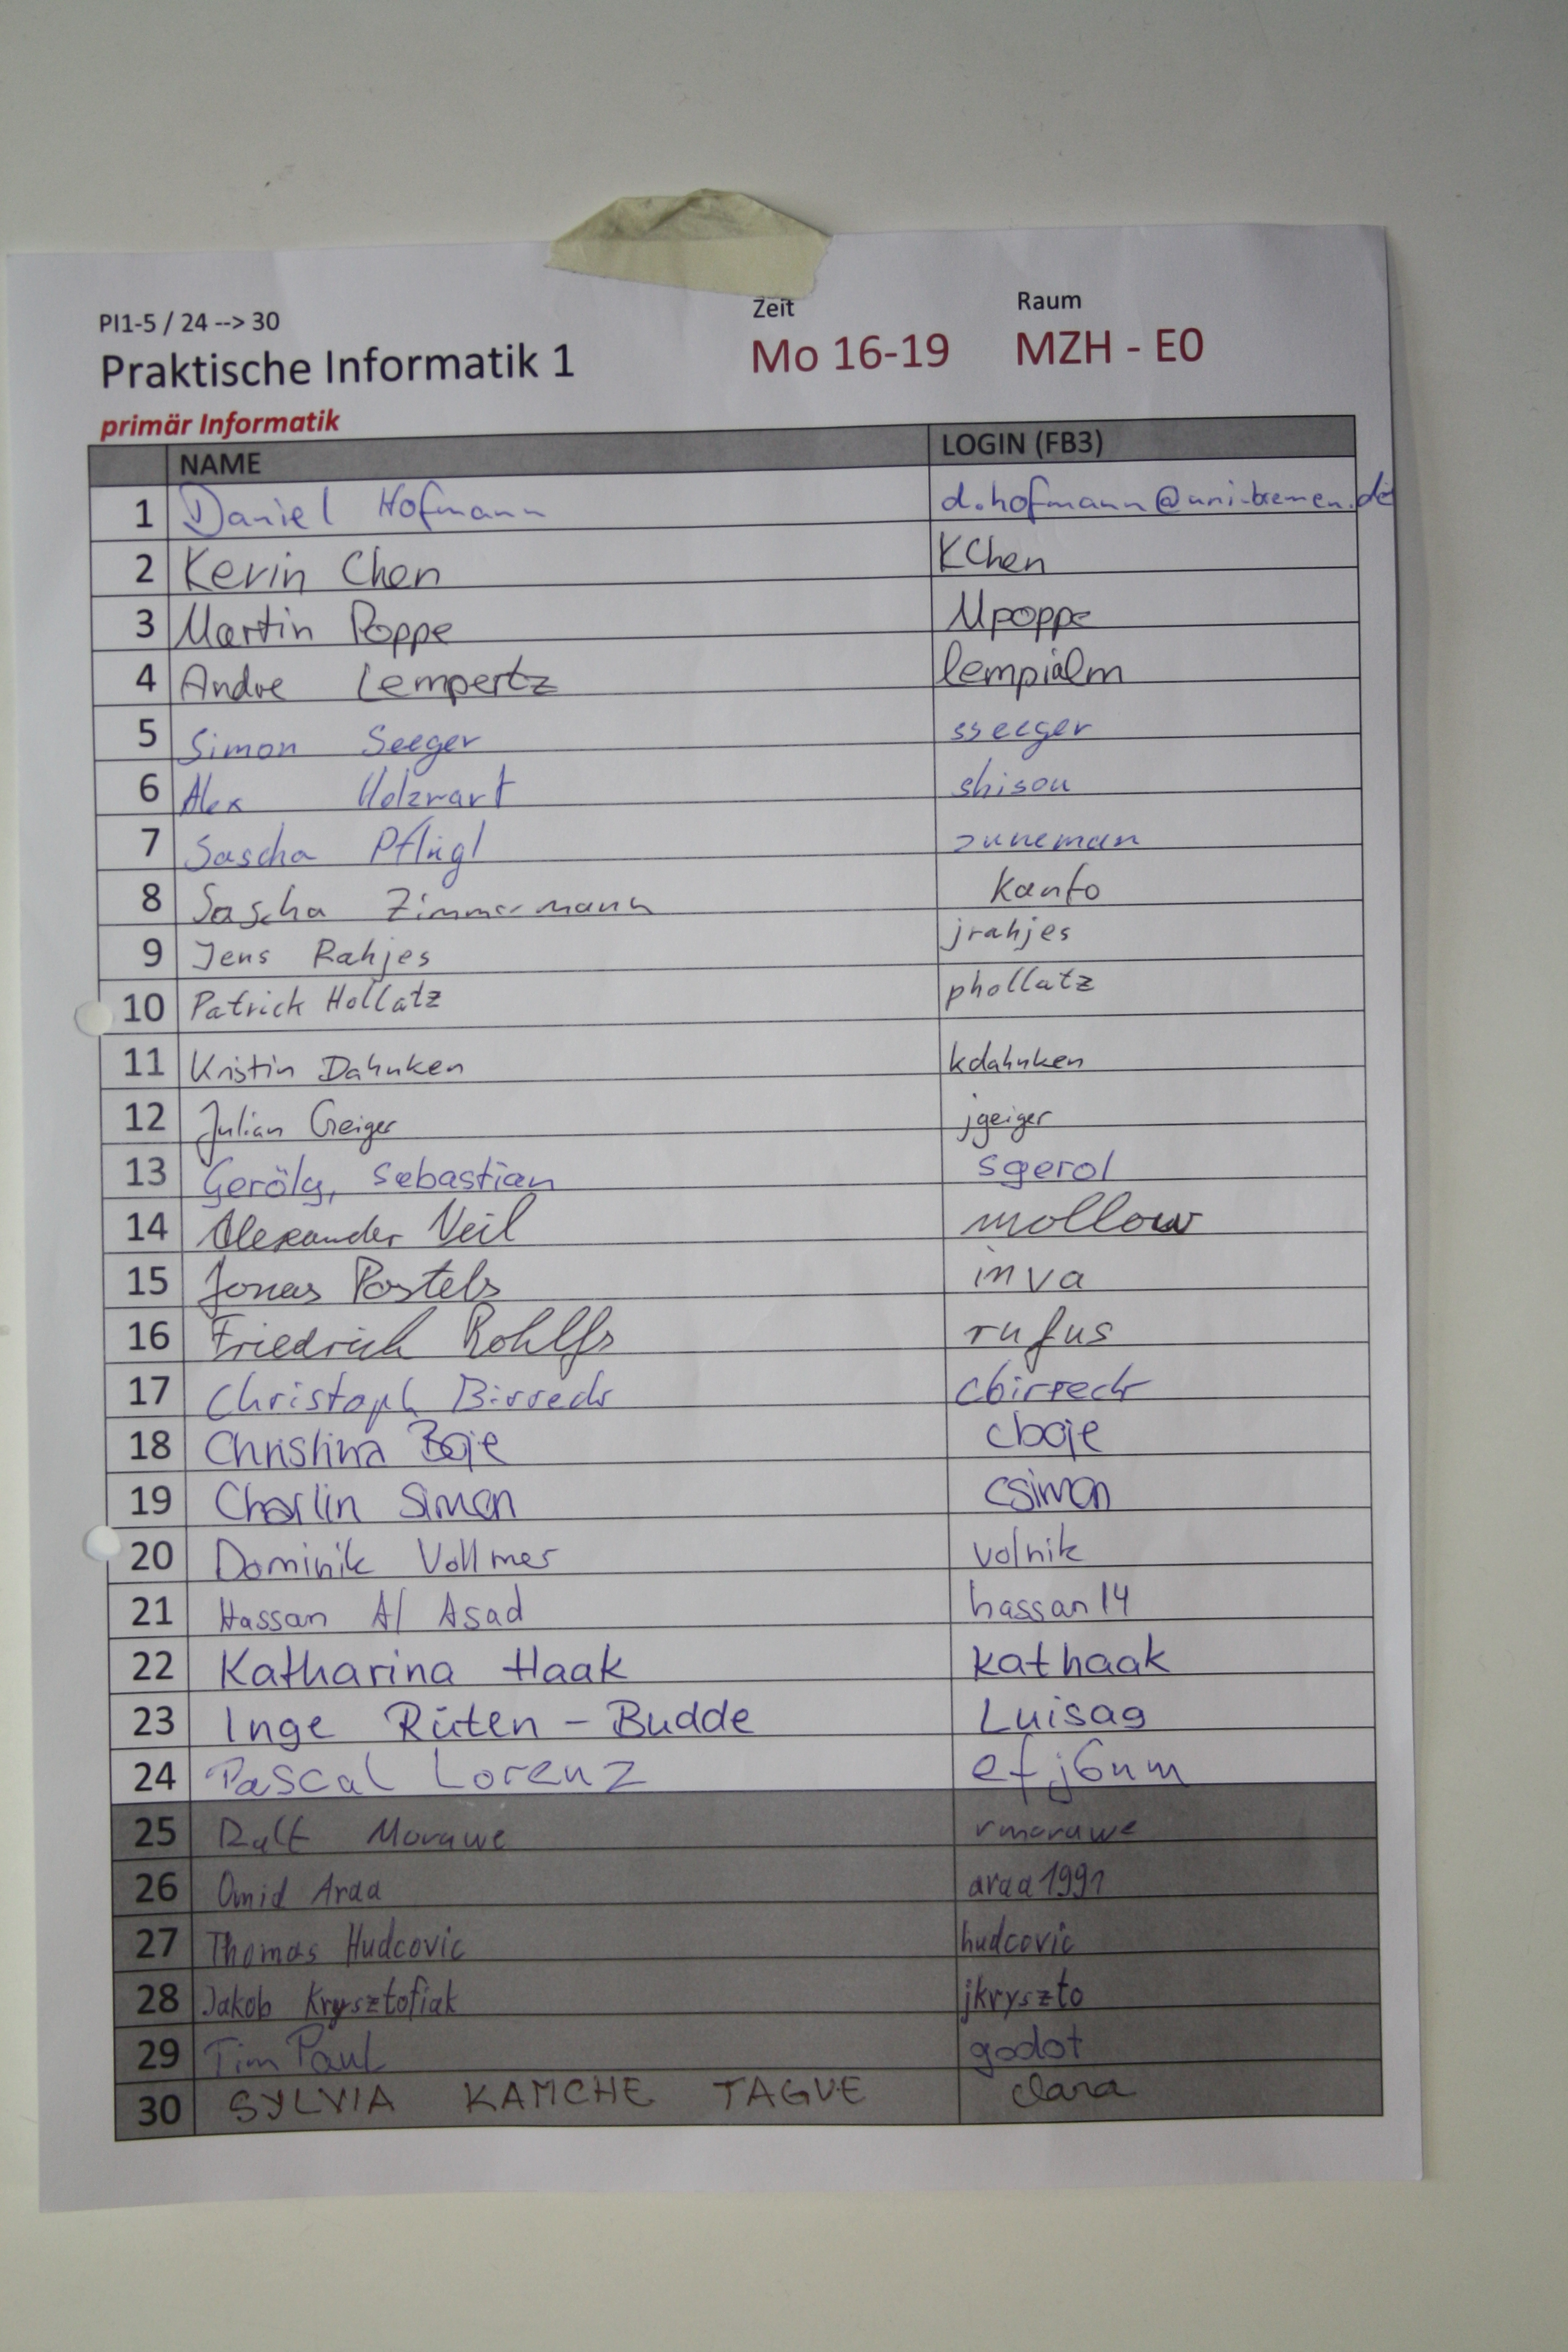 PI1-5 / 24 --> 30 Zeit Raum
Praktische Informatik 1 Mo 16-19 MZH - E0
primär Informatik
NAME LOGIN (FB3)
1 Daniel Hofmann d.hofmann@uni-bremen.de
2 Kevin Chen KChen
3 Martin Poppe Mpoppe
4 Andre Lempertz lempialm
5 Simon Seeger sseeger
6 Alex Holzwart shisou
7 Sascha Pflügl zuneman
8 Sascha Zimmermann kanfo
9 Jens Rahjes jrahjes
10 Patrick Hollatz phollatz
11 Kristin Dahnken kdahnken
12 Julian Geiger jgeiger
13 Sebastian sgerol
14 Alexander Veil mollow
15 Jonas Postels inva
16 Friedrich Rohlfs rufus
17 Christoph
18 Christina Boje cboje
19 Charlin Simon csimon
20 Dominik Vollmer volnik
21 Hassan Al Asad hassan14
22 Katharina Haak kathaak
23 Inge Rüten - Budde Luisag
24 Pascal Lorenz efj6nm
25 Ralf Morawe rmorawe
26 Omid Araa araa1991
27 Thomas Hudcovic hudcovic
28 Jakob Krysztofiak jkryszto
29 Tim Paul godot
30 SYLVIA KAMCHE TAGUE clara